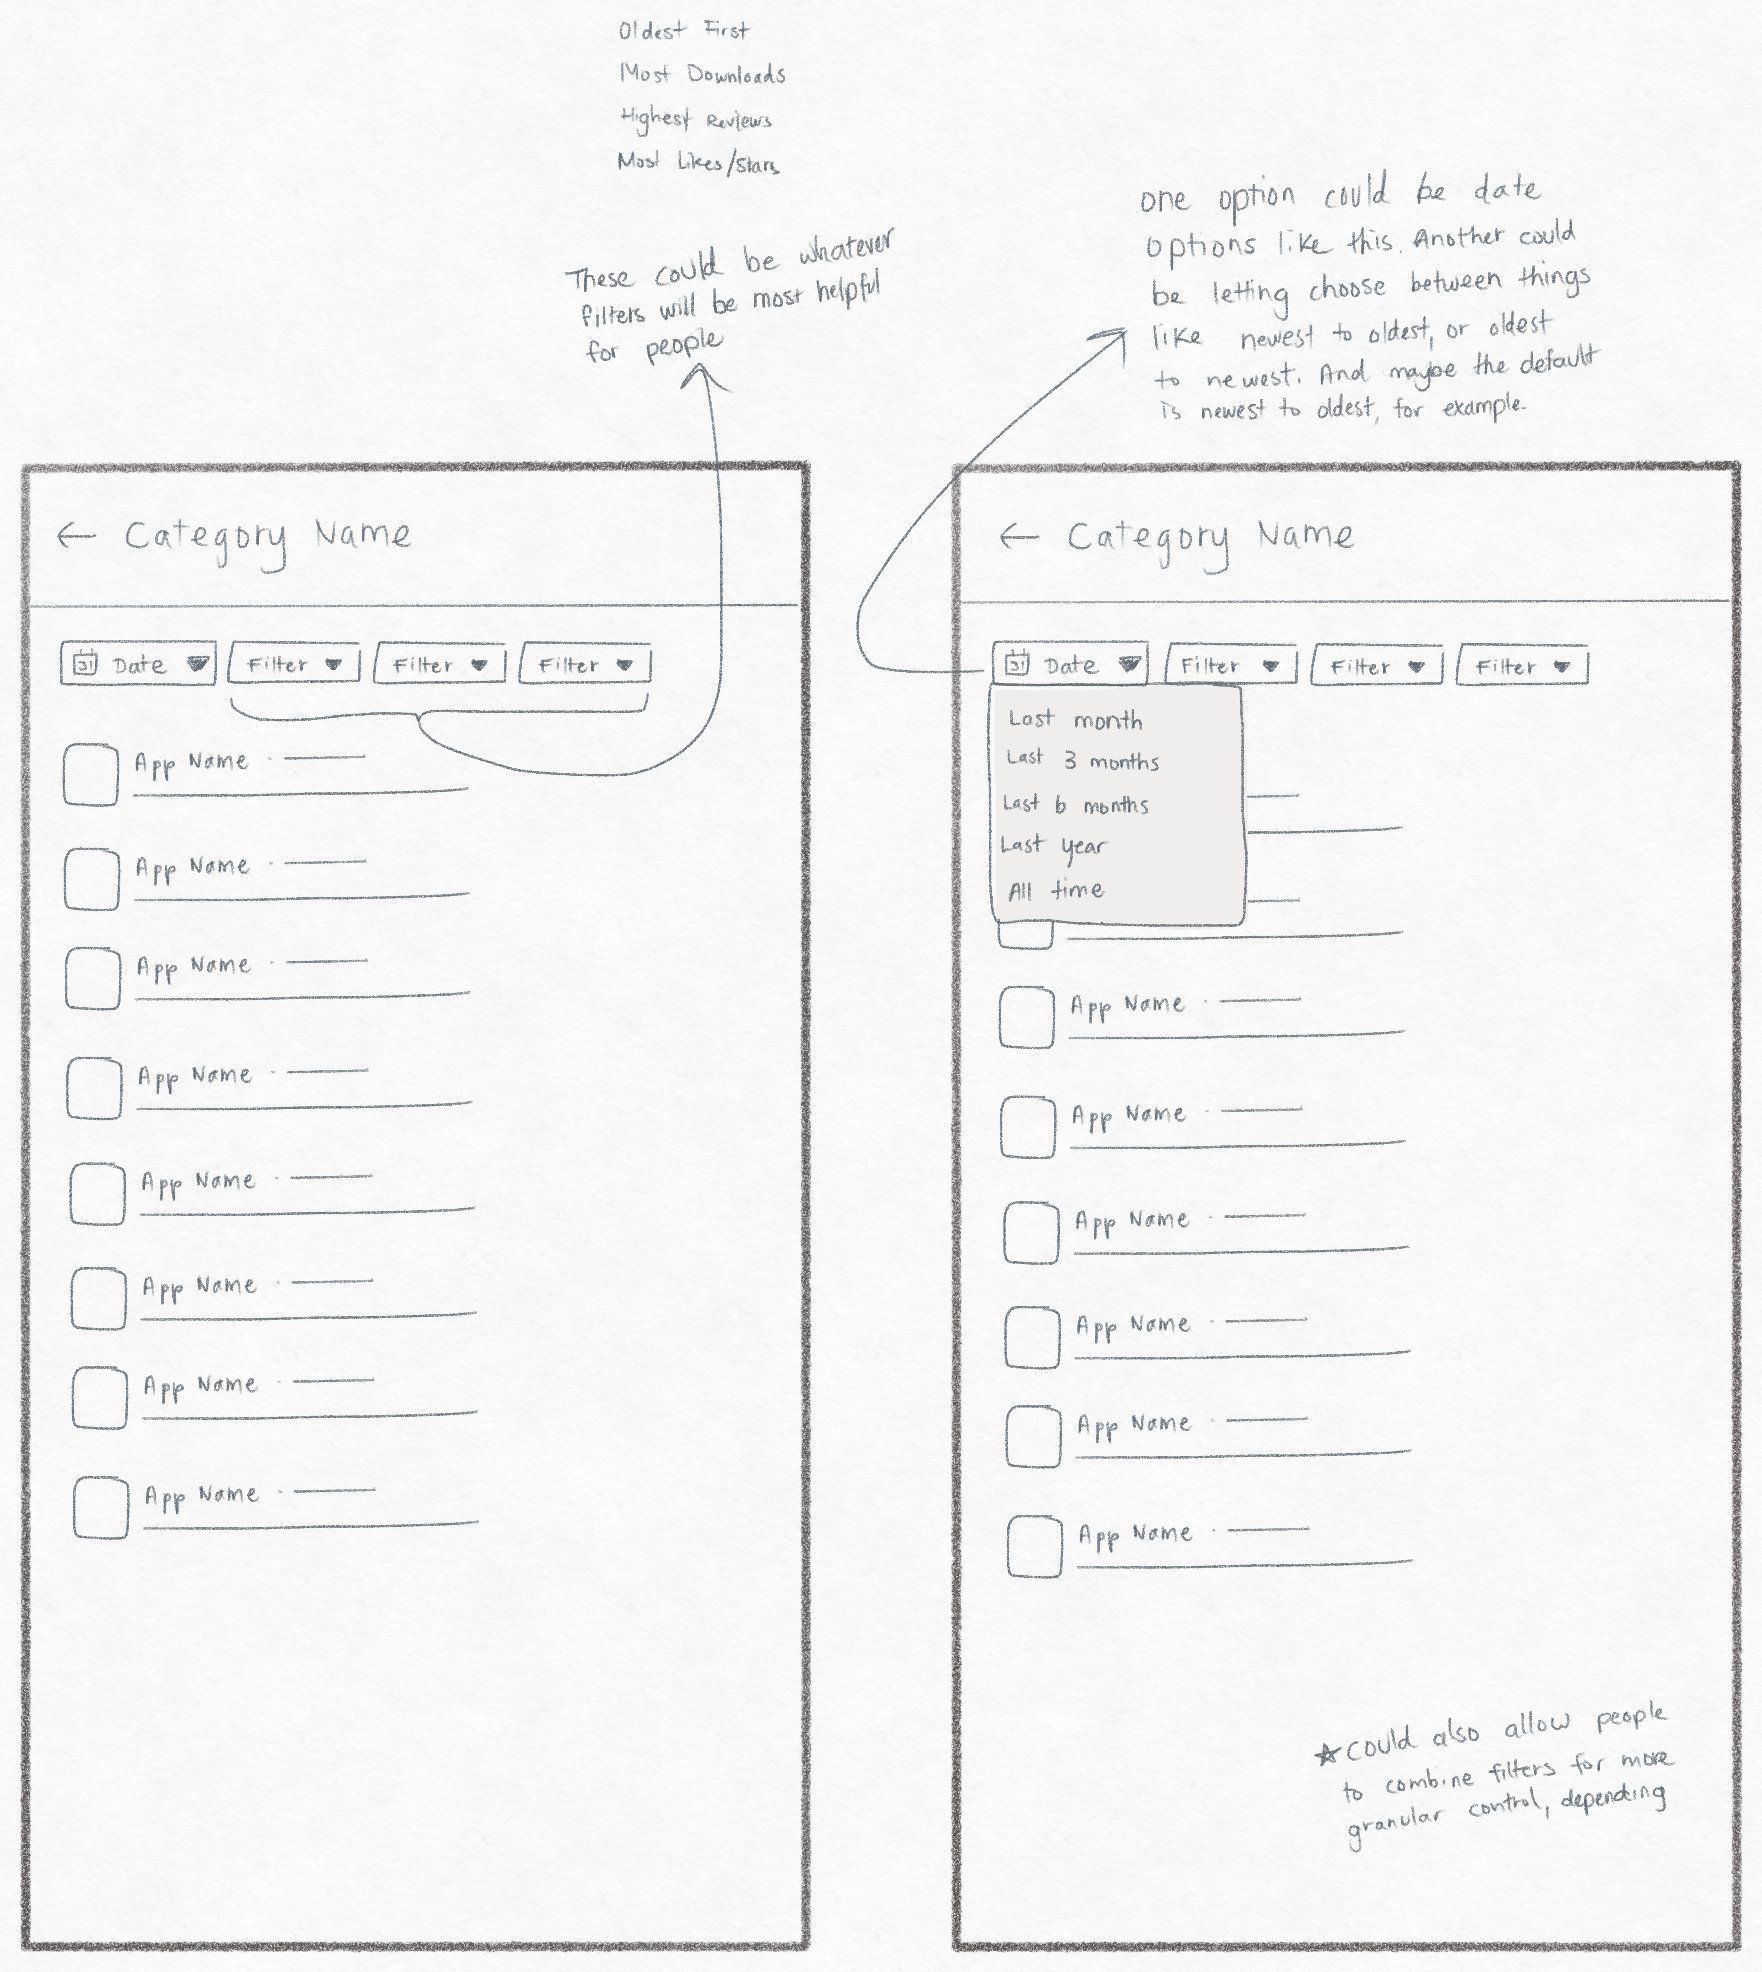 Oldest First
Most Downloads
Highest Reviews
Most Likes/Stars
These could be whatever
filters will be most helpful
for people
one option could be date
options like this. Another could
be letting choose between things
like newest to oldest, or oldest
to newest. And maybe the default
is newest to oldest, for example.
← Category Name
31 Date Filter Filter Filter
App Name
App Name
App Name
App Name
App Name
App Name
App Name
App Name
← Category Name
31 Date Filter Filter Filter
Last month
Last 3 months
Last 6 months
Last year
All time
App Name
App Name
App Name
App Name
App Name
App Name
★ could also allow people
to combine filters for more
granular control, depending